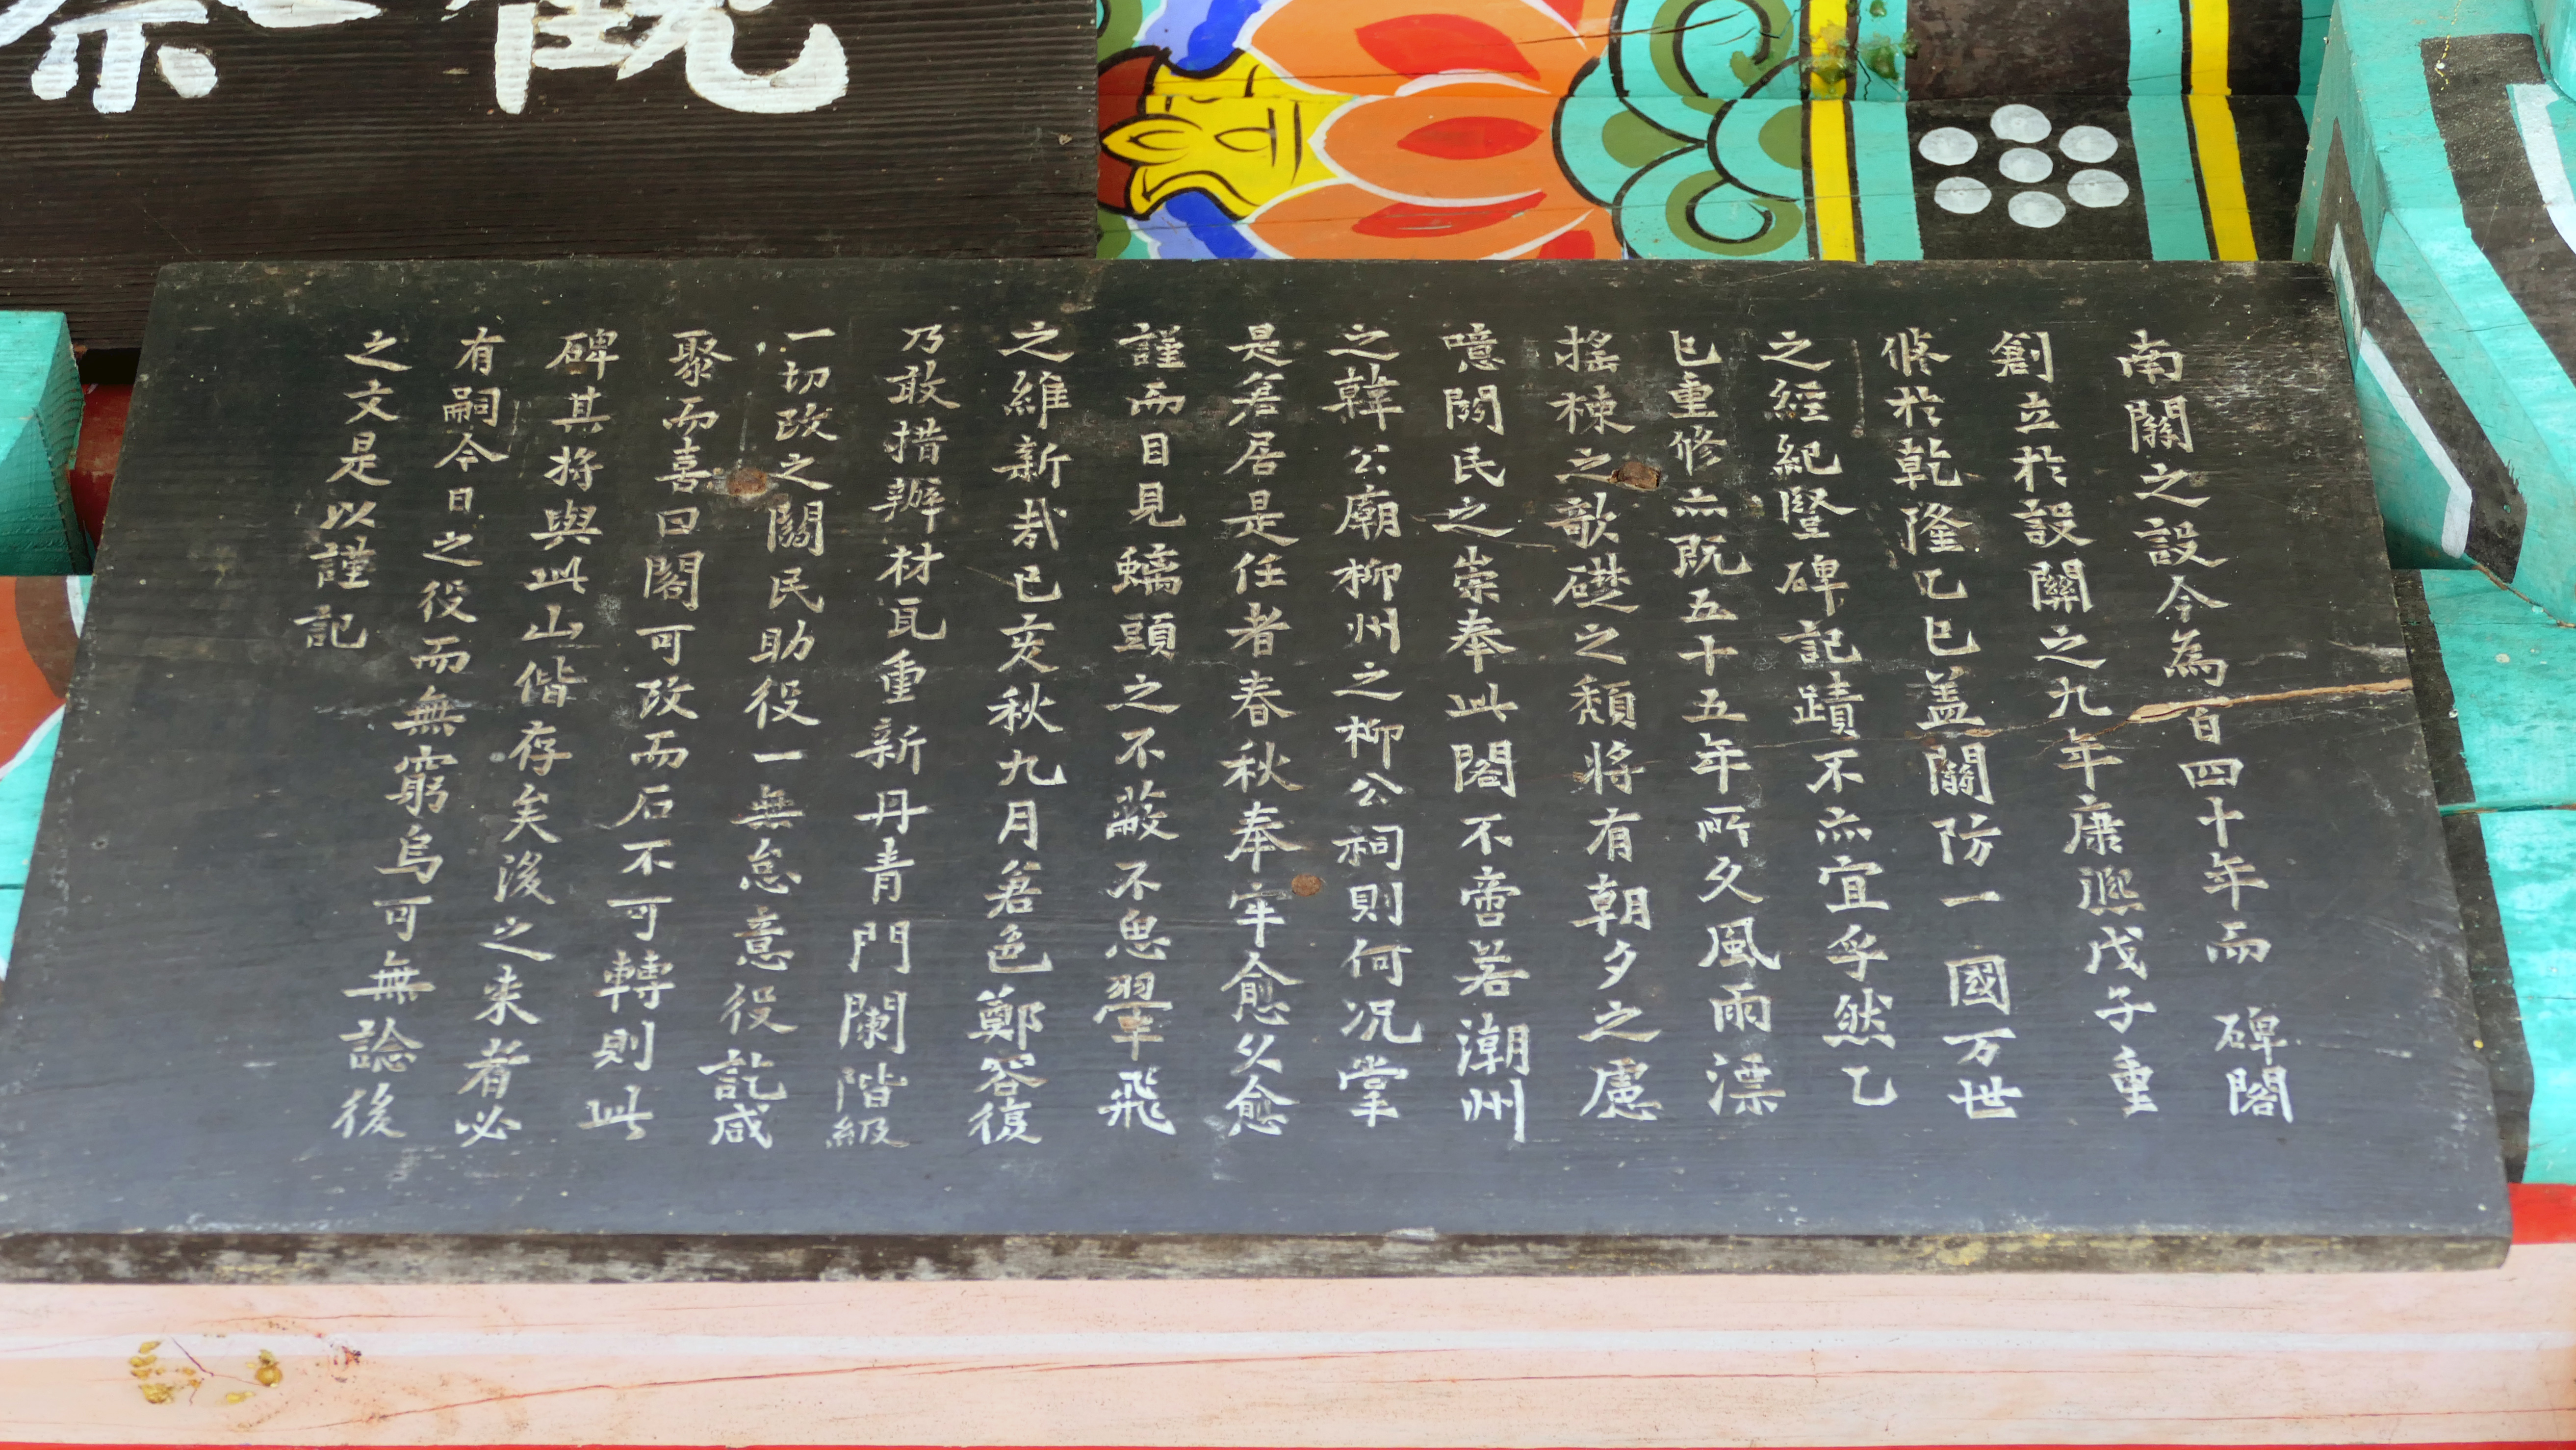 南關之設今為百四十年而 碑閣
創立於設關之九年康熙戊子重
修於乾隆乙巳盖關防一 國万世
之經紀豎碑記蹟不亦宜乎然乙
巳重修亦既五十五年所久風雨漂
搖棟之欹礎之頹將有朝夕之慮
噫關民之崇奉此閣不啻若潮州
之韓公廟柳州之柳公祠則何况掌
是者居是任者春秋奉牢愈久愈
謹而目見螭頭之不蔽不思翬飛
之維新哉己亥秋九月若邑鄭容復
乃敢措辦材瓦重新丹青門闌階級
一切改之關民助役一無怠意役訖咸
聚而喜曰閣可改而石不可轉則此
碑其將與此山偕存矣後之来者必
有嗣今日之役而無窮焉可無諗後
之文是以謹記